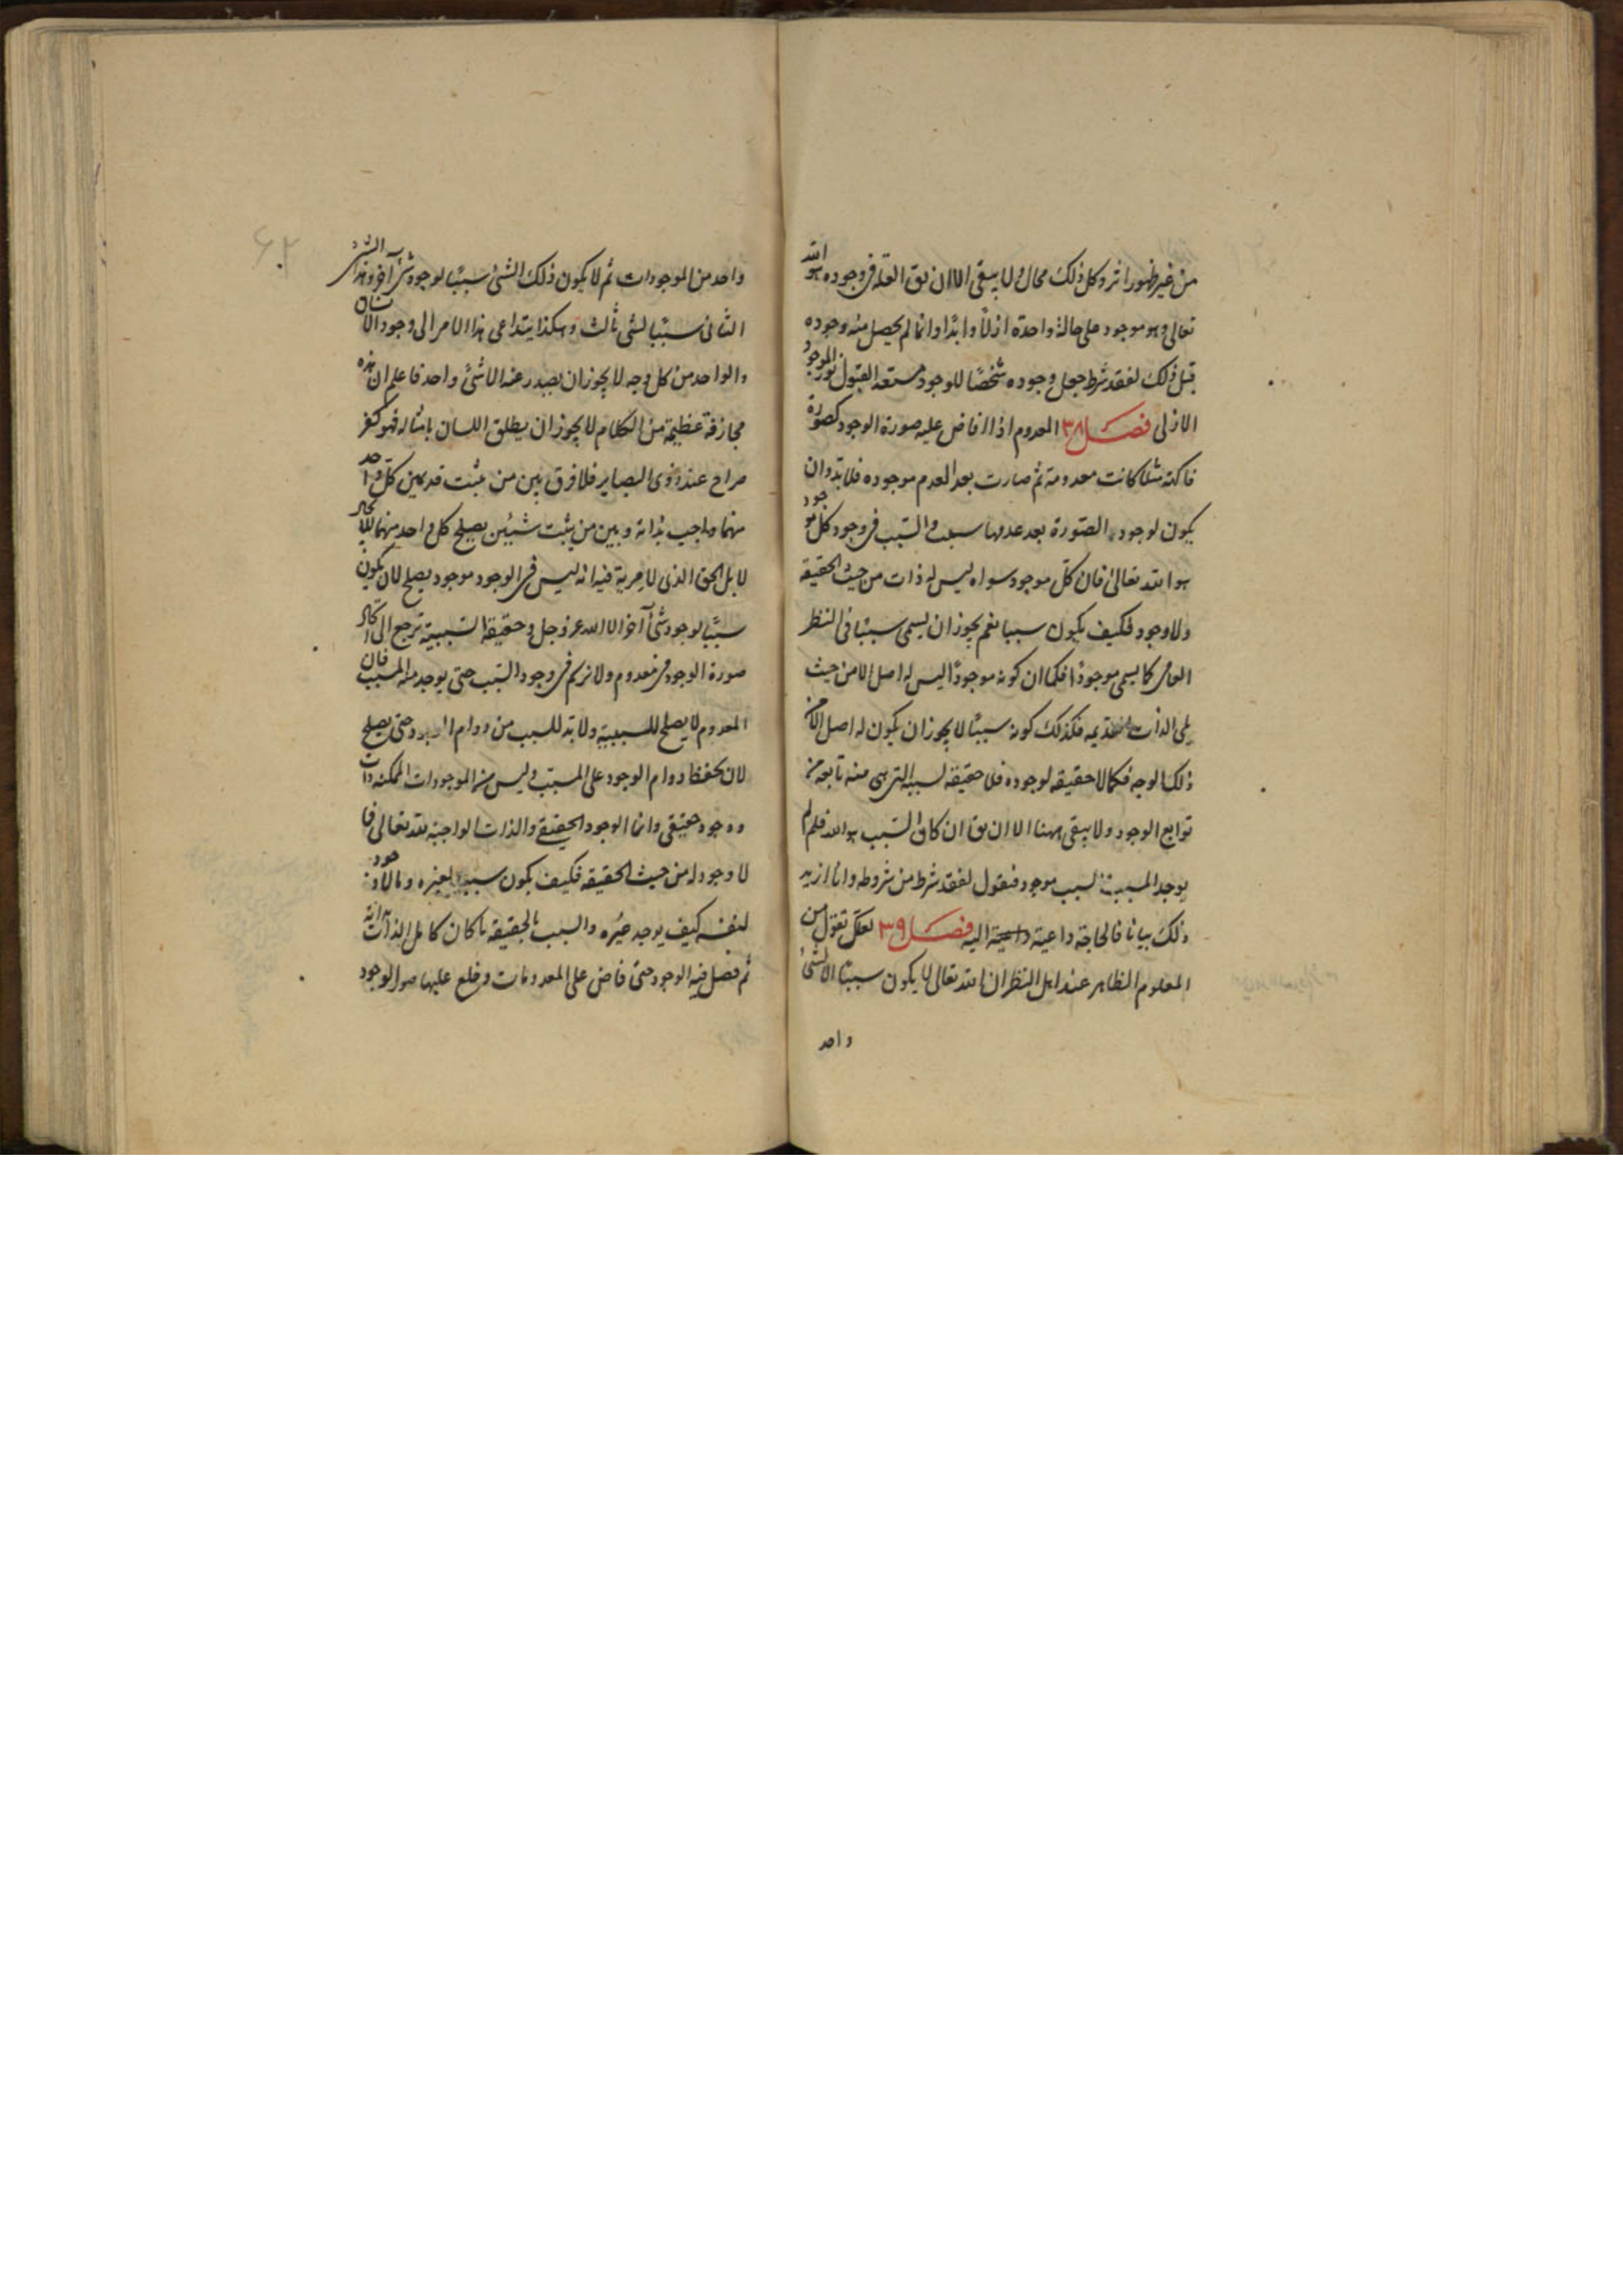 من غير ظهور اثر وكل ذلك محال ولا يبقى الا ان يق العلة فى وجوده هو الله
تعالى وهو موجود على حالة واحدة ازلًا وابدًا وانما لم يحصل منه وجوده
قبل ذلك لفقد شرط جعل وجوده شخصًا للوجود مستعد القبول نور الموجود
الازلى فصل ٣٨ المعدوم اذا افاض عليه صورة الوجود كصورة
فاكهة مثلا كانت معدومة ثم صارت بعد العدم موجوده فلا بد وان
يكون لوجود الصورة بعد عدمها سبب والسبب فى وجود كل موجود
هو الله تعالى فان كل موجود سواه ليس له ذات من حيث الحقيقه
ولا وجود فكيف يكون سببا نعم يجوز ان يسمى سببًا فى النظر
العامى كما يسمى موجودًا فكما ان كونه موجودًا ليس له اصل الا من حيث
يلى الذات القديمه فكذلك كونه سببًا لا يجوز ان يكون له اصل الا من
ذلك الوجه فكما لا حقيقه لوجوده فلا حقيقة لسببيه التى هى منه تابعه من
توابع الوجود ولا يبقى ههنا الا ان يق ان كان السبب هو الله فلم لم
يوجد المسبب السبب موجود فنقول لفقد شرط من شروطه وانا ازيد
ذلك بيانا فالحاجة داعية اليه فصل ٣٩ لعلك تقول من
المعلوم الظاهر عند اهل النظر ان الله تعالى لا يكون سببًا الا لشئ
واحد
٤٢
واحد من الموجودات ثم لا يكون ذلك الشئ سببًا لوجود شئ آخر وهذا الشئ
الثانى سببًا لشئ ثالث وهكذا يتداعى هذا الامر الى وجود الانسان
والواحد من كل وجه لا يجوز ان يصدر عنه الا شئ واحد فاعلم ان هذه
مجازفة عظيمة من الكلام لا يجوز ان يطلق اللسان بامثاله فهو كفر
صراح عند ذوى البصاير فلا فرق بين من يثبت قديمين كل واحد
منهما واجب بذاته وبين من يثبت شيئين يصلح كل واحد منهما للايجاد
لا بل الحق الذى لا مرية فيه انه ليس فى الوجود موجود يصلح لان يكون
سببًا لوجود شئ آخر الا الله عز وجل وحقيقة السببية ترجع الى ايجاد
صورة الوجود فى معدوم ولا نزكم فى وجود السبب حتى يوجد منه المسبب فان
المعدوم لا يصلح للسببية ولا بد للسبب من دوام الوجود حتى يصلح
لان يحفظ دوام الوجود على المسبب وليس من الموجودات الممكنه ذات
ووجود حقيقى وانما الوجود الحقيقى والذات الواجبة لله تعالى فما
لا وجود له من حيث الحقيقه فكيف يكون سببا لغيره وما لا وجود
لنفسه كيف يوجد غيره والسبب بالحقيقه ما كان كامل الذات بذاته
ثم فضل فيه الوجود حتى فاض على المعدومات وخلع عليها صور الوجود